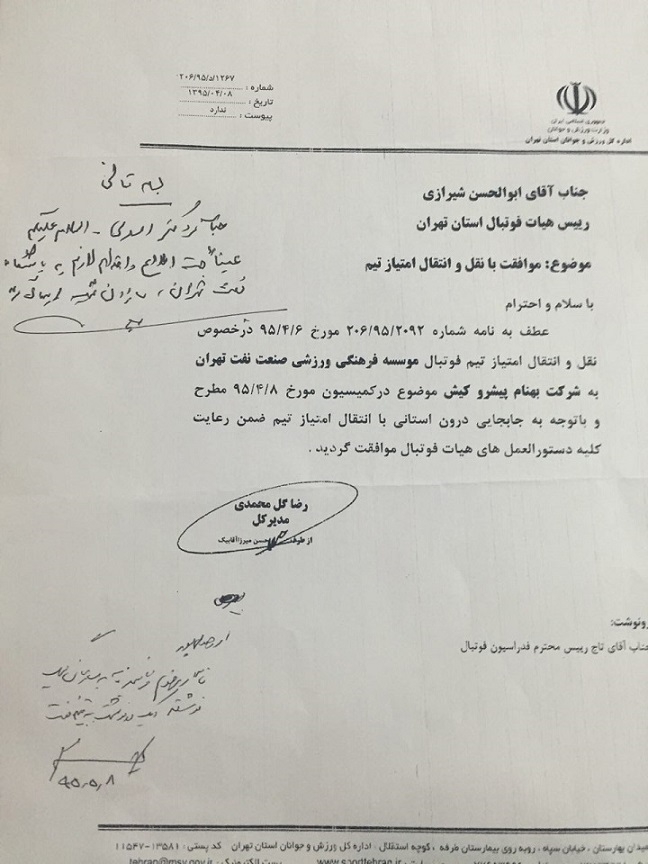 شماره : ۲۰۶/۹۵/د/۱۲۶۷
تاریخ : ۱۳۹۵/۰۴/۰۸
پیوست : ندارد
جمهوری اسلامی ایران
وزارت ورزش و جوانان
اداره کل ورزش و جوانان استان تهران
جناب آقای ابوالحسن شیرازی
رییس هیات فوتبال استان تهران
موضوع: موافقت با نقل و انتقال امتیاز تیم
با سلام و احترام
عطف به نامه شماره ۲۰۶/۹۵/۲۰۹۲ مورخ ۹۵/۴/۶ درخصوص
نقل و انتقال امتیاز تیم فوتبال موسسه فرهنگی ورزشی صنعت نفت تهران
به شرکت بهنام پیشرو کیش موضوع درکمیسیون مورخ ۹۵/۴/۸ مطرح
و باتوجه به جابجایی درون استانی با انتقال امتیاز تیم ضمن رعایت
کلیه دستورالعمل های هیات فوتبال موافقت گردید .
رضا گل محمدی
مدیرکل
از طرف حسن میرزاآقابیک
به تعالی
السلام علیکم
جهت اطلاع و اقدام لازم به باشگاه
نفت تهران
رونوشت:
جناب آقای تاج رییس محترم فدراسیون فوتبال
۹۵,۵,۸
میدان بهارستان ، خیابان سپاه ، روبه روی بیمارستان طرفه ، کوچه استقلال ، اداره کل ورزش و جوانان استان تهران کد پستی : ۱۳۵۸۱-۱۱۵۴۷
www.spodtehran.ir پست الکترونیک : tehran@msy.gov.ir